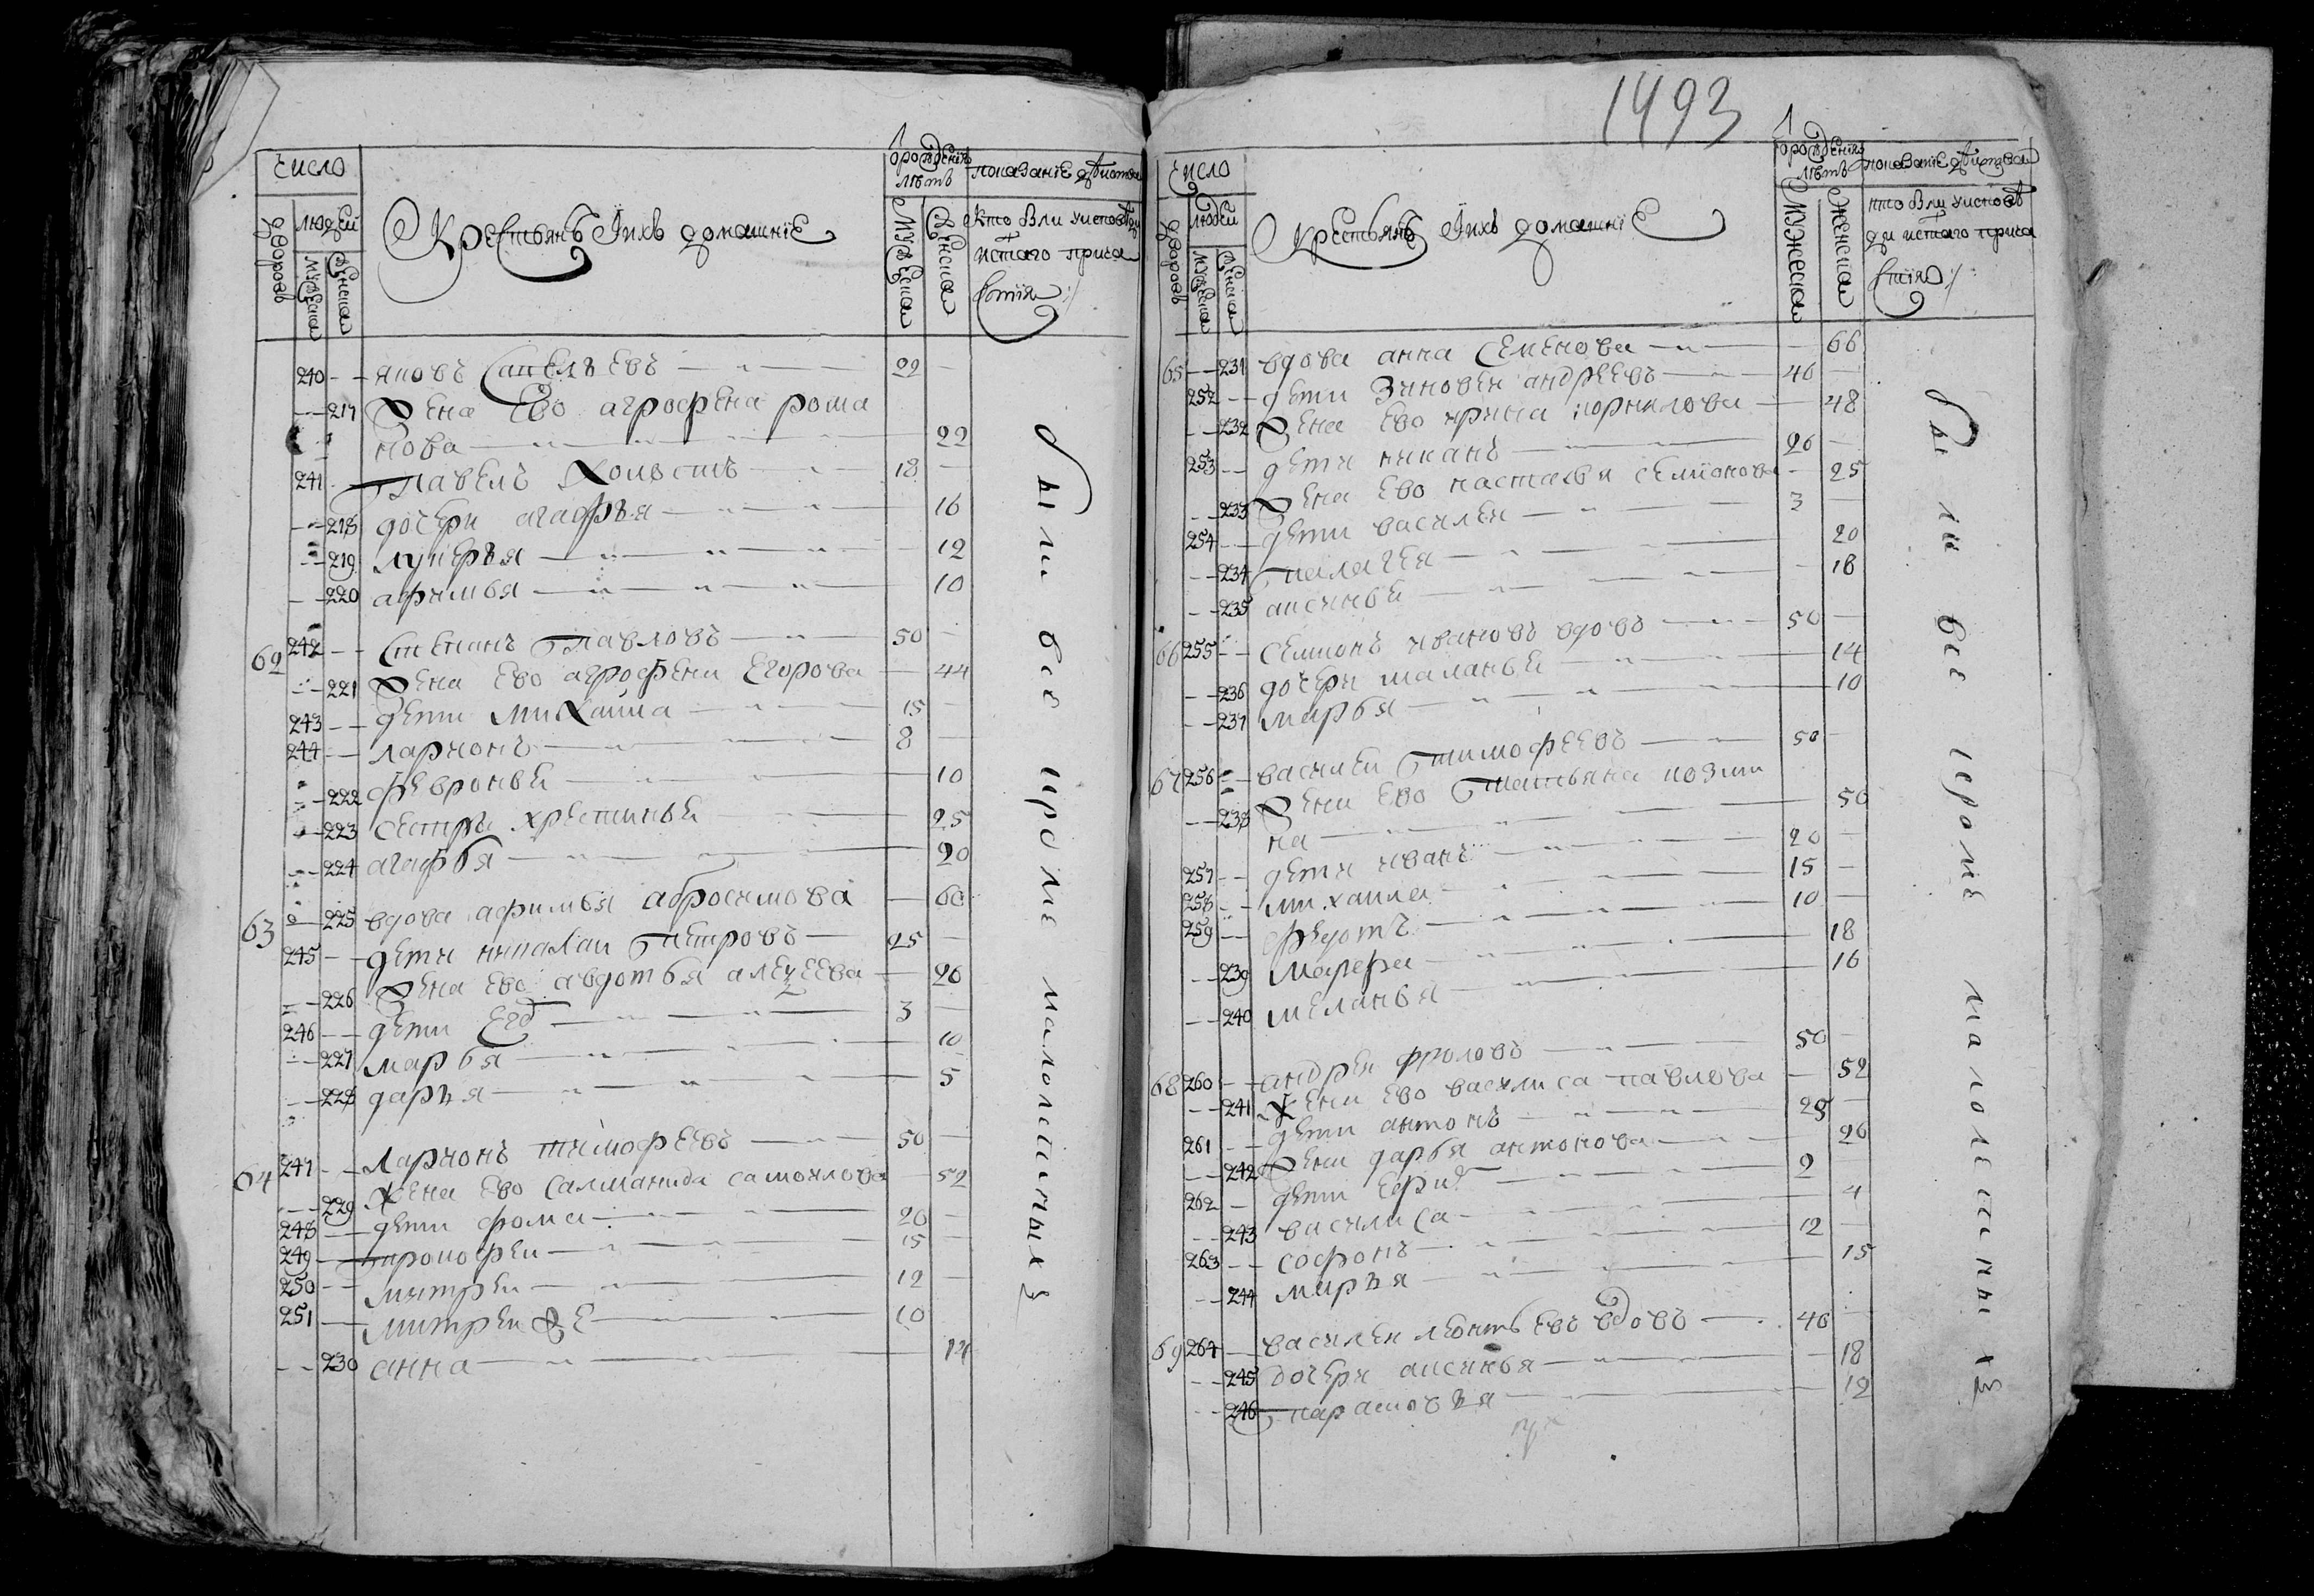 число
дворовъ
людей
мужеска
женска
Крестьянъ ихъ домашнiе
От рожденiя лѣтъ
мужеска
женска
показанiе действа
кто были у исповѣди
и с̃таго прича
стiя:/
240 яковъ савельевъ 22
217 Жена Ево агрофена рома
нова 22
241 Павелъ Холостъ 18
218 дочери агафья 16
219 лукерья 12
220 афимья 10
62 242 степанъ Павловъ 50
221 Жена Ево агрофена Егорова 44
243 дети михаила 15
244 ларионъ 8
222 февронья 10
223 сестры христинья 25
224 агафья 20
63 225 вдова афимья абросимова 60
245 дети николаи Петровъ 25
226 Жена Ево авдотья алеѯеева 26
246 дети Егоръ 3
227 марья 10
228 дарья 5
64 247 Ларионъ тимофеевъ 50
229 Жена Ево саламанида самоилова 52
248 дети фома 20
249 прокофеи 15
250 митреи 12
251 митреи Же 10
230 анна 14
были все кроме малолетныхъ
1493
число
дворовъ
людей
мужеска
женска
Крестьянъ ихъ домашнiе
От рожденiя лѣтъ
мужеска
женска
показанiе действа
кто были у исповѣ
ди и с̃таго прича
стiя:/
65 231 вдова анна Семенова 66
252 дети Зиновеи андреевъ 46
232 Жена Ево ирина корнилова 48
253 дети никанъ 26
233 Жена Ево настасья семионова 25
254 дети василеи 3
234 Пелагея 20
235 аксинья 18
66 255 семионъ ивановъ вдовъ 50
236 дочери маланья 14
237 марья 10
67 256 василеи Тимофеевъ 50
238 Жена Ево Татьяна козми
на 50
257 дети иванъ 20
258 михаила 15
259 федотъ 10
239 марфа 18
240 меланья 16
68 260 андреи фроловъ 50
241 Жена Ево василиса павлова 52
261 дети антонъ 25
242 Жена дарья антонова 26
262 дети Ефимъ 2
243 василиса 4
263 софонъ 12
244 марья 15
69 264 василеи леонтьевъ вдовъ 46
245 дочери аксинья 18
246 парасковья 12
были все кроме малолетныхъ